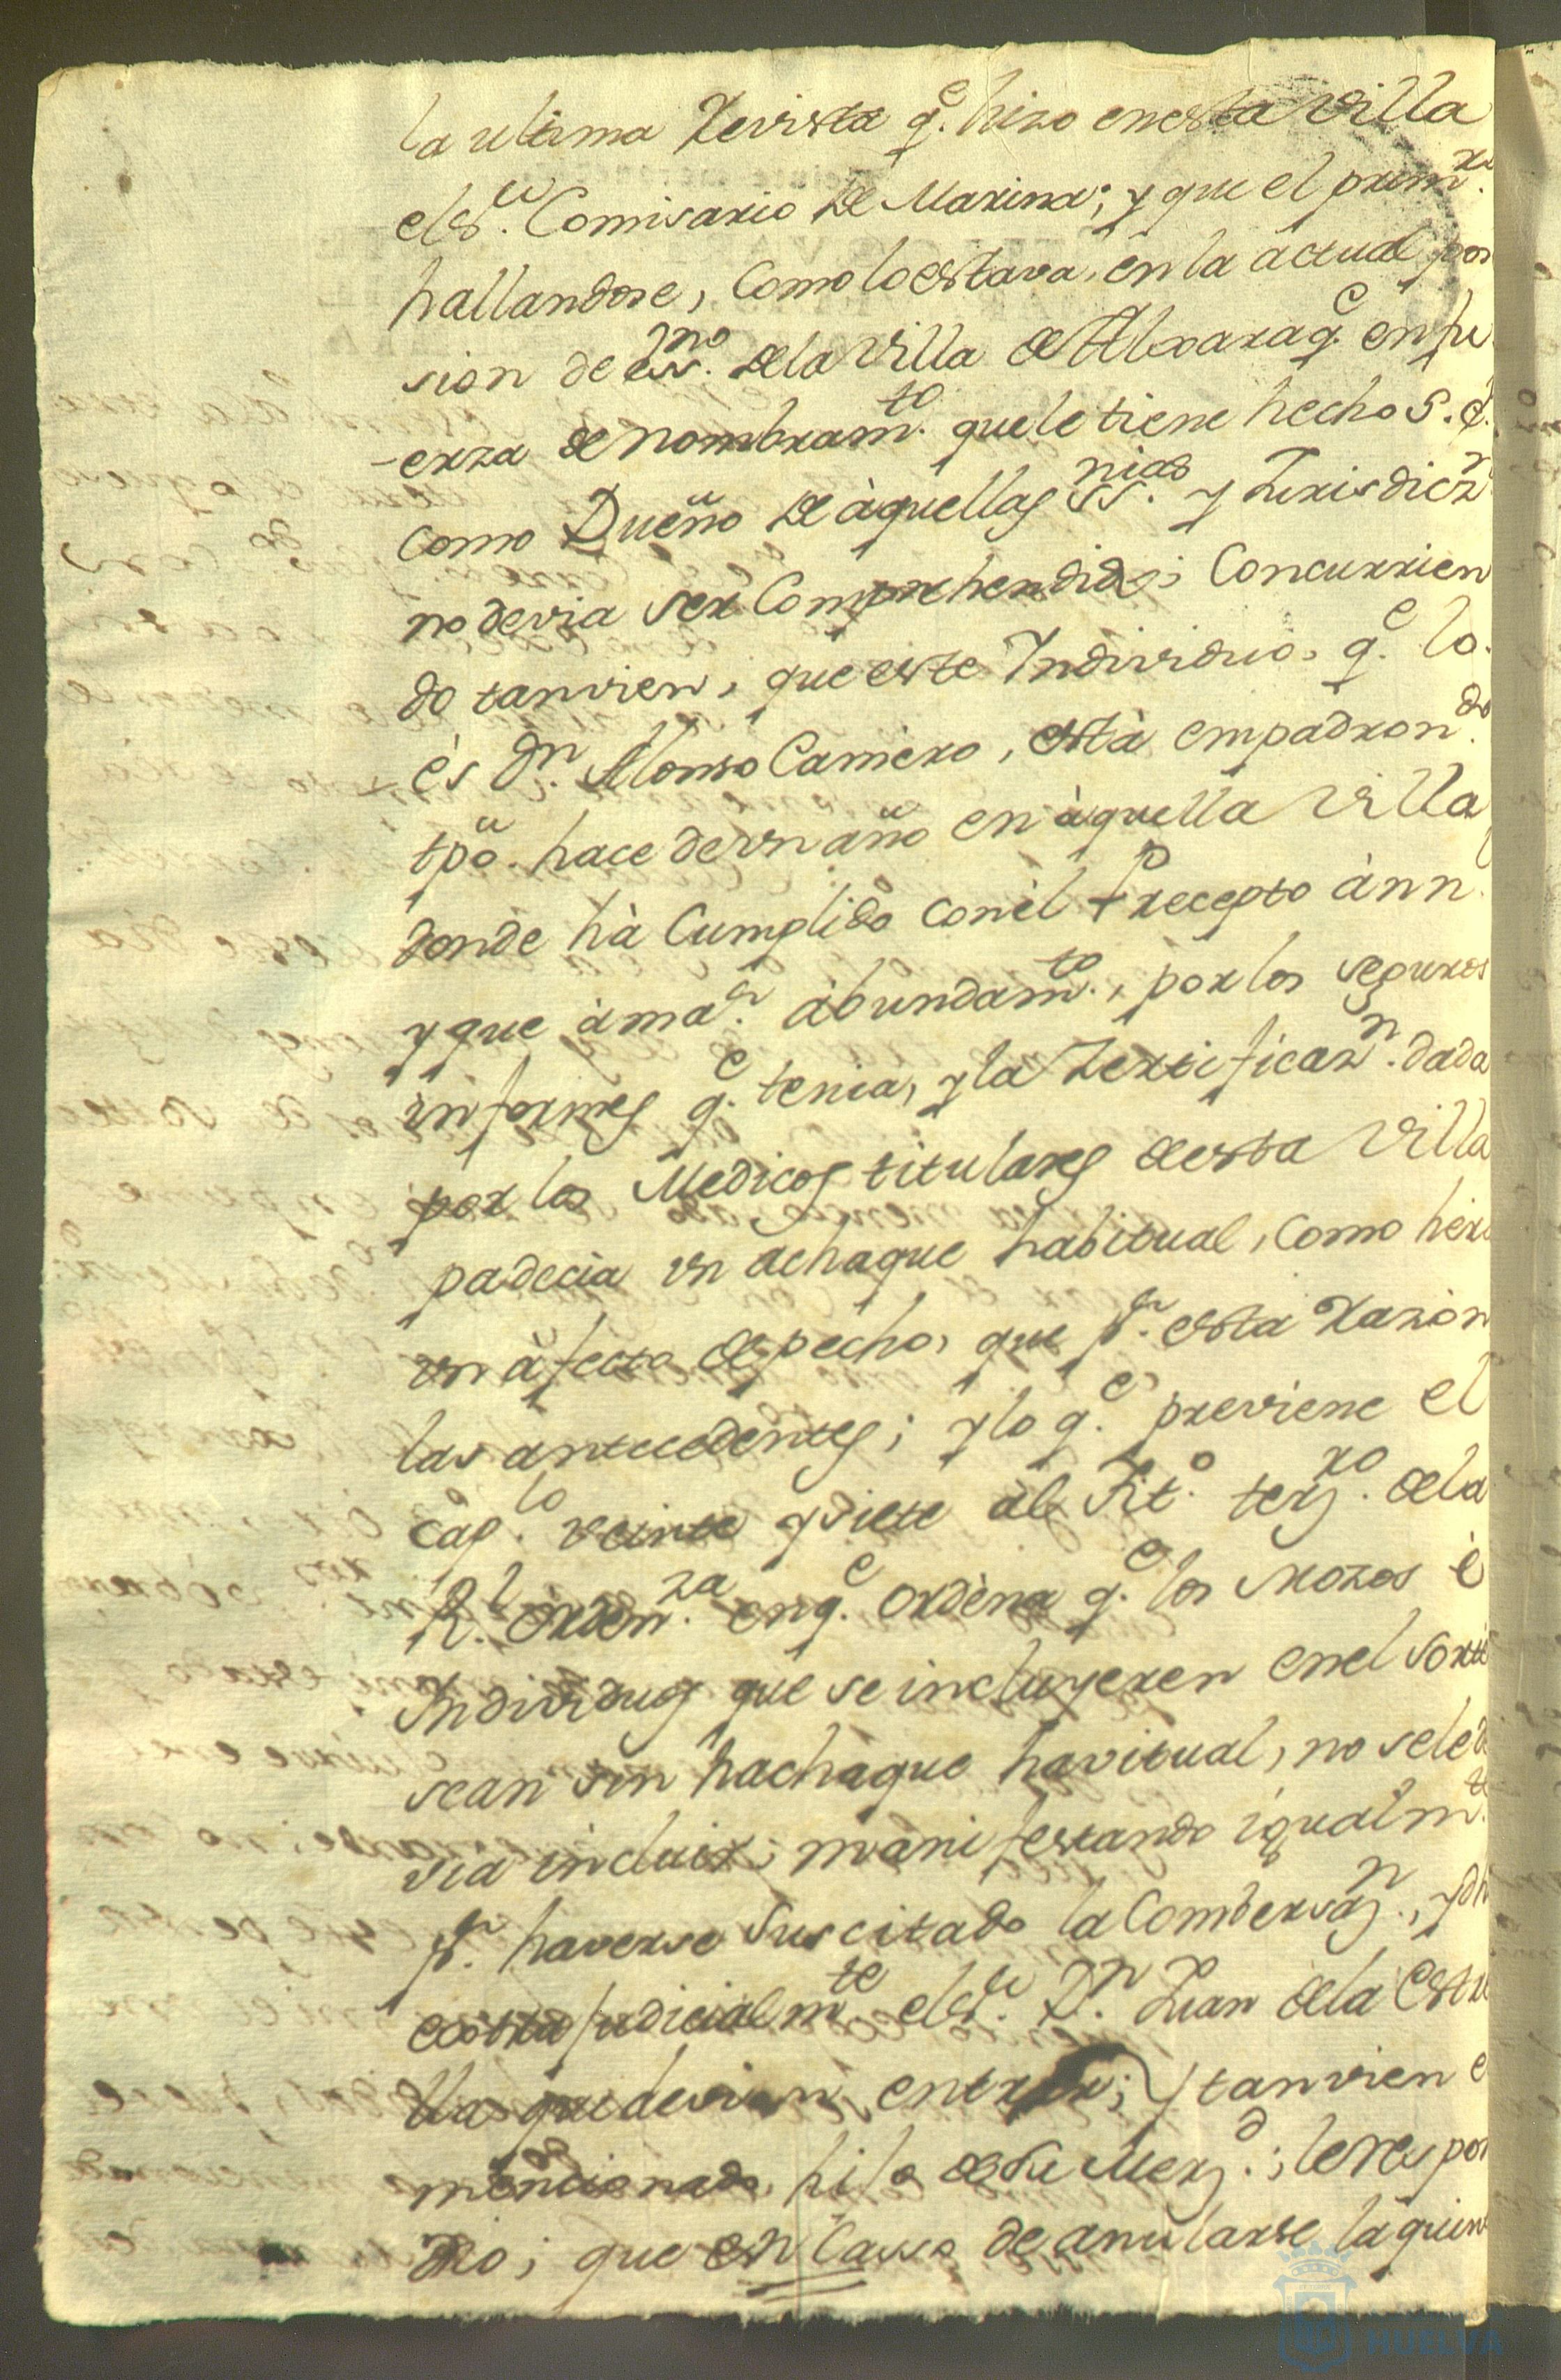 la ultima Revista q.e hizo en esta villa
el S.or Comisario de Marina; y que el prim.ro
hallandose, como lo estava, en la actual pose
sion de ess.no de la villa de Aljaraq.e en fu
-erza de nombram.to que le tiene hecho S. E.
como Dueño de àquellas SS.nias y Jurisdicz.n
no devia ser Comprehendido; Concurrien
do tanvien, que este Individuo, q.e lo
ès D.n Alonso Carniero, està empadron.do
tpõ. hace de un año en àquella villa
donde hà Cumplido con èl Precepto ànn.
y que àma.or àbundam.to, por los seguros
informes q.e tenia, y la Zertificaz.n dada
por los Medicos titulares de esta villa
padecia un achaque habitual, como hera
un àfecto de pecho, que p.r esta Razòn
las antecedentes; y lo q.e previene el
Cap.lo veinte y siete al Tit.o terz.ro de la
R.l Orden.za en q.e Ordèna q.e los Mozos è
Individuos que se incluyeren en el Sorteo
sean sin hachaque havitual, no se le de
via incluir; manifestando igualm.te
p.r haverse suscitado la Combersaz.n, y dho
extrajudicialm.te el S.r D.n Juan de la Estre
lla que devian entrar; y tanvien e
mencionado hilo de su Merz.d; le respon
dio; que en Casso de anularse la quin
HUELVA